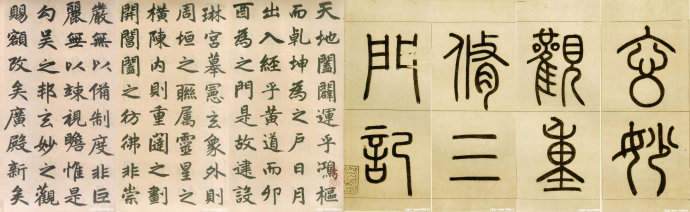 玄妙
觀重
脩三
門記
天地闔闢運乎鴻樞
而乾坤為之戶日月
出入經乎黃道而卯
酉為之門是故建設
琳宮摹憲玄象外則
周垣之聯屬靈星之
橫陳內則重闥之劃
開閶闔之彷彿非崇
嚴無以備制度非巨
麗無以竦視瞻惟是
勾吳之邦玄妙之觀
賜額改矣廣殿新矣